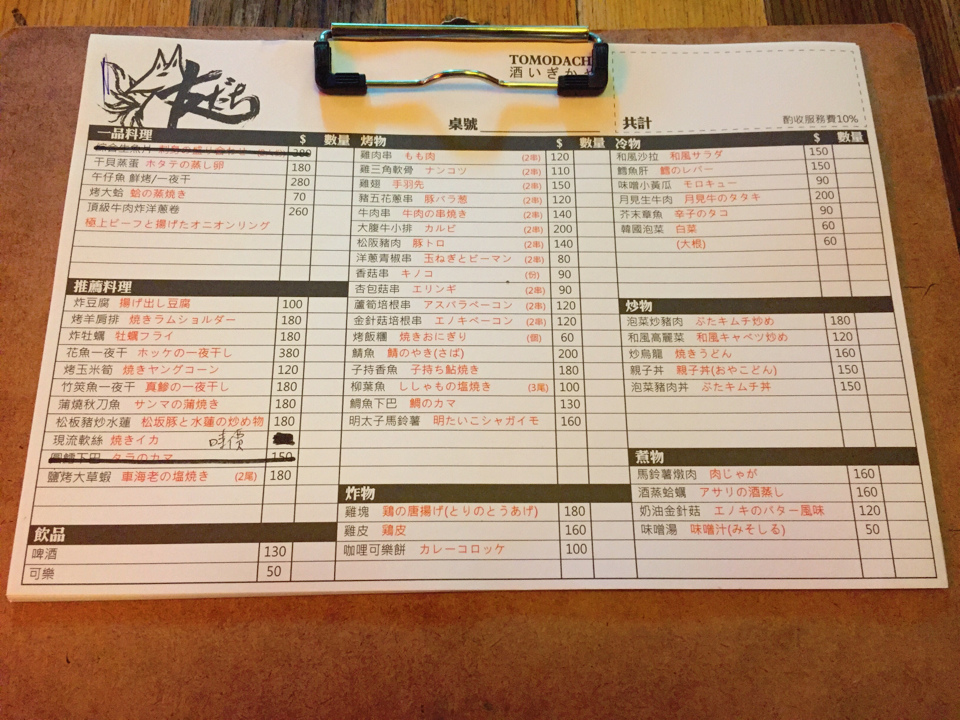 友だち
TOMODACH
酒いざかや
桌號
共計
酌收服務費10%
一品料理 $ 數量
380
干貝蒸蛋 ホタテの蒸し卵 180
午仔魚 鮮烤/一夜干 280
烤大蛤 蛤の蒸焼き 70
頂級牛肉炸洋蔥卷 260
極上ビーフと揚げたオニオンリング
推薦料理
炸豆腐 揚げ出し豆腐 100
烤羊肩排 焼きラムショルダー 180
炸牡蠣 牡蠣フライ 180
花魚一夜干 ホッケの一夜干し 380
烤玉米筍 焼きヤングコーン 120
竹筴魚一夜干 真鯵の一夜干し 180
蒲燒秋刀魚 サンマの蒲焼き 180
松板豬炒水蓮 松坂豚と水蓮の炒め物 180
現流軟絲 焼きイカ 時價
圓鱈下巴 タラのカマ 150
鹽烤大草蝦 車海老の塩焼き (2尾) 180
飲品
啤酒 130
可樂 50
烤物 $ 數量
雞肉串 もも肉 (2串) 120
雞三角軟骨 ナンコツ (2串) 110
雞翅 手羽先 (2串) 150
豬五花蔥串 豚バラ葱 (2串) 120
牛肉串 牛肉の串焼き (2串) 140
大腹牛小排 カルビ (2串) 200
松阪豬肉 豚トロ (2串) 140
洋蔥青椒串 玉ねぎとピーマン (2串) 80
香菇串 キノコ (份) 90
杏包菇串 エリンギ (2串) 90
蘆筍培根串 アスパラベーコン (2串) 120
金針菇培根串 エノキベーコン (2串) 120
烤飯糰 焼きおにぎり (個) 60
鯖魚 鯖のやき(さば) 200
子持香魚 子持ち鮎焼き 180
柳葉魚 ししゃもの塩焼き (3尾) 100
鯛魚下巴 鯛のカマ 130
明太子馬鈴薯 明たいこシャガイモ 160
炸物
雞塊 鶏の唐揚げ(とりのとうあげ) 180
雞皮 鶏皮 160
咖哩可樂餅 カレーコロッケ 100
冷物 $ 數量
和風沙拉 和風サラダ 150
鱈魚肝 鱈のレバー 150
味噌小黃瓜 モロキュー 90
月見生牛肉 月見牛のタタキ 200
芥末章魚 辛子のタコ 90
韓國泡菜 白菜 60
(大根) 60
炒物
泡菜炒豬肉 ぶたキムチ炒め 180
和風高麗菜 和風キャベツ炒め 120
炒烏龍 焼きうどん 160
親子丼 親子丼(おやこどん) 150
泡菜豬肉丼 ぶたキムチ丼 150
煮物
馬鈴薯燉肉 肉じゃが 160
酒蒸蛤蠣 アサリの酒蒸し 160
奶油金針菇 エノキのバター風味 120
味噌湯 味噌汁(みそしる) 50